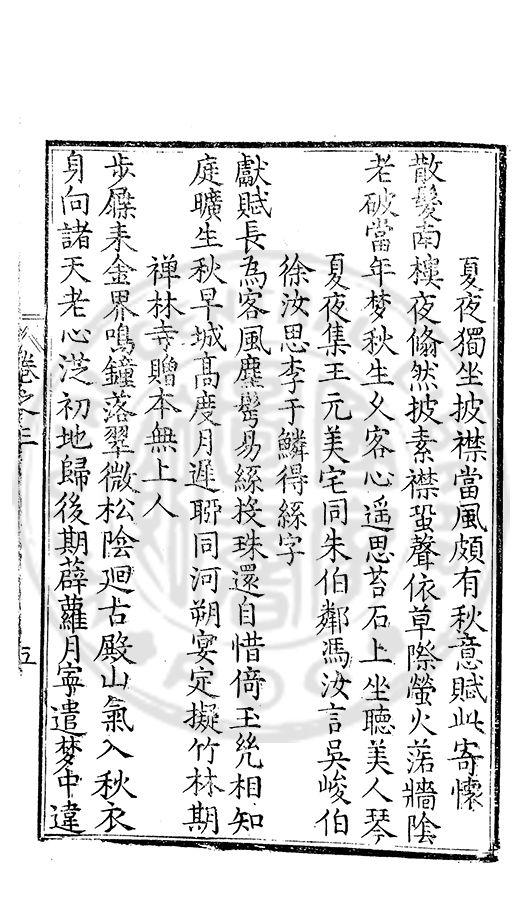 夏夜獨坐披襟當風頗有秋意賦此寄懷
散髮南樓夜翛然披素襟蛩聲依草際螢火落牆陰
老破當年梦秋生久客心遥思苔石上坐聽美人琴
夏夜集王元美宅同朱伯鄰馮汝言吳峻伯
徐汝思李于鱗得絲字
獻賦長為客風塵鬢易絲投珠還自惜倚玉㡬相知
庭曠生秋早城高度月遲聊同河朔宴定擬竹林期
禅林寺贈本無上人
步屧来金界鳴鐘落翠微松陰廻古殿山氣入秋衣
身向諸天老心從初地歸後期薜蘿月寧遣梦中違
卷之二
五